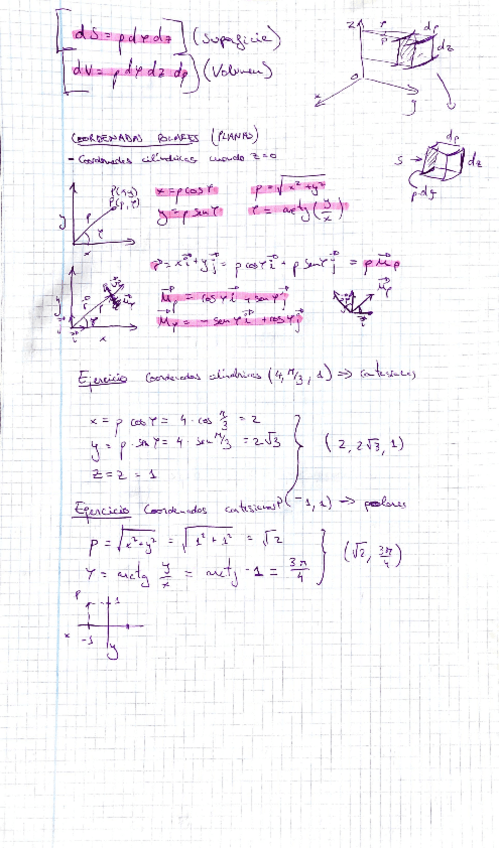 dS = ρ dφ dz (Superficie)
dV = ρ dφ dz dρ (Volumen)
z φ ρ dρ dz
O x y
dρ
S dz
ρdφ
COORDENADAS POLARES (PLANAS)
- Coordenadas cilíndricas cuando z=0
P(x,y) x = ρ cosφ ρ = √x²+y²
P(ρ,φ)
y ρ φ y = ρ senφ φ = arctg(y/x)
x
r⃗ = xi⃗ + yj⃗ = ρ cosφ i⃗ + ρ senφ j⃗ = ρ μ⃗ρ
μ⃗ρ = cosφ i⃗ + senφ j⃗
μ⃗φ = -senφ i⃗ + cosφ j⃗
x
Ejercicio Coordenadas cilíndricas (4, π/3, 1) ⇒ cartesianas
x = ρ cosφ = 4 · cos π/3 = 2
y = ρ · senφ = 4 · sen π/3 = 2√3 (2, 2√3, 1)
z = z = 1
Ejercicio Coordenadas cartesianas P(-1, 1) ⇒ polares
ρ = √x²+y² = √1²+1² = √2
φ = arctg y/x = arctg -1 = 3π/4 (√2, 3π/4)
P 1
x -1 y